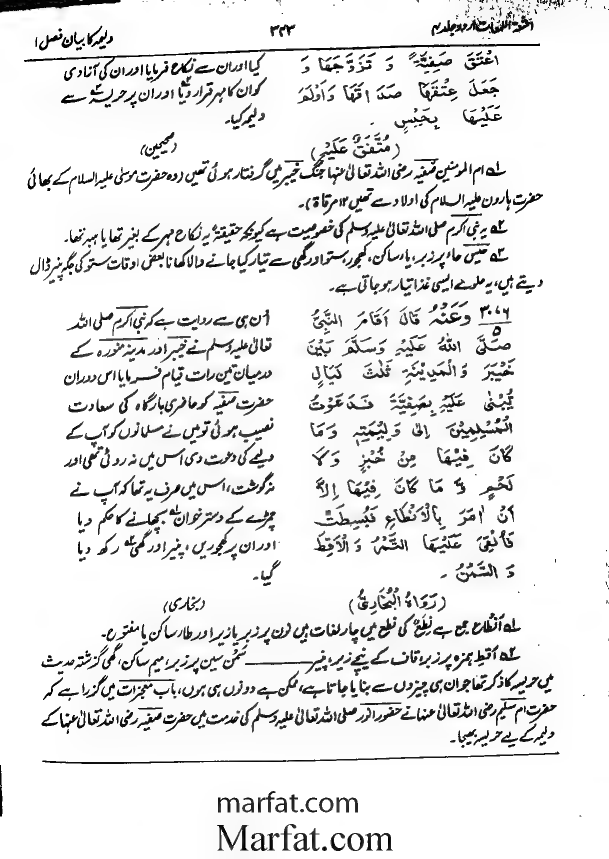 اشعۃ اللمعات اردو جلد ۴ ۳۲۳ ولیمہ کا بیان فصل ۱
اَعْتَقَ صَفِیَّۃَ وَ تَزَوَّجَھَا وَ
جَعَلَ عِتْقَھَا صَدَاقَھَا وَاَوْلَمَ
عَلَیْھَا بِحَیْسٍ ۔
(مُتَّفَقٌ عَلَیْہِ)
کیا اور ان سے نکاح فرمایا اور ان کی آزادی
کو ان کا مہر قرار دیا۲ اور ان پر حریسہ۳ سے
ولیمہ کیا۔
(صحیحین)
۱؎ ام المومنین صفیہ رضی اللہ تعالیٰ عنہا جنگ خیبر میں گرفتار ہوئی تھیں (وہ حضرت موسیٰ علیہ السلام کے بھائی
حضرت ہارون علیہ السلام کی اولاد سے تھیں ۱۲ مرقاۃ)۔
۲؎ یہ نبی اکرم صلی اللہ تعالیٰ علیہ وسلم کی خصوصیت ہے کیونکہ حقیقۃً یہ نکاح مہر کے بغیر تھا یا ہبہ تھا۔
۳؎ حَیْس حاء پر زبر، یاء ساکن، کھجور، ستو اور گھی سے تیار کیا جانے والا کھانا بعض اوقات ستو کی جگہ پنیر ڈال
دیتے ہیں، یہ حلوے ایسی غذا تیار ہو جاتی ہے۔
۳۰۷۶/۵ وَعَنْہُ قَالَ اَقَامَ النَّبِیُّ
صَلَّی اللّٰہُ عَلَیْہِ وَسَلَّمَ بَیْنَ
خَیْبَرَ وَ الْمَدِیْنَۃِ ثَلٰثَ لَیَالٍ
یُّبْنٰی عَلَیْہِ بِصَفِیَّۃَ فَدَعَوْتُ
الْمُسْلِمِیْنَ اِلٰی وَلِیْمَتِہٖ وَمَا
کَانَ فِیْھَا مِنْ خُبْزٍ وَّلَا
لَحْمٍ وَّ مَا کَانَ فِیْھَا اِلَّا
اَنْ اَمَرَ بِالْاَنْطَاعِ فَبُسِطَتْ
فَاُلْقِیَ عَلَیْھَا التَّمْرُ وَ الْاَقِطُ
وَ السَّمْنُ ۔
(رَوَاہُ الْبُخَارِیُّ)
اُن ہی سے روایت ہے کہ نبی اکرم صلی اللہ
تعالیٰ علیہ وسلم نے خیبر اور مدینہ منورہ کے
درمیان تین رات قیام فرمایا اس دوران
حضرت صفیہ کو حاضری بارگاہ کی سعادت
نصیب ہوئی تو میں نے مسلمانوں کو آپ کے
ولیمے کی دعوت دی اس میں نہ روٹی تھی اور
نہ گوشت، اس میں صرف یہ تھا کہ آپ نے
چمڑے کے دسترخوان۱ بچھانے کا حکم دیا
اور ان پر کھجوریں، پنیر اور گھی۲ رکھ دیا
گیا۔
(بخاری)
۱؎ اَنْطَاع جمع ہے نِطَع کی نطع میں چار لغات ہیں نون پر زبر یا زیر اور طاء ساکن یا مفتوح۔
۲؎ اَقِط ہمزہ پر زبر، قاف کے نیچے زیر، پنیر ـــــــ سَمْن سین پر زبر، میم ساکن، گھی گزشتہ حدیث
میں حریسہ کا ذکر تھا جو ان ہی چیزوں سے بنایا جاتا ہے، ممکن ہے دونوں ہی ہوں، باب معجزات میں گزرا ہے کہ
حضرت ام سلیم رضی اللہ تعالیٰ عنہا نے حضور انور صلی اللہ تعالیٰ علیہ وسلم کی خدمت میں حضرت صفیہ رضی اللہ تعالیٰ عنہا کے
ولیمہ کے لیے حریسہ بھیجا۔
marfat.com
Marfat.com